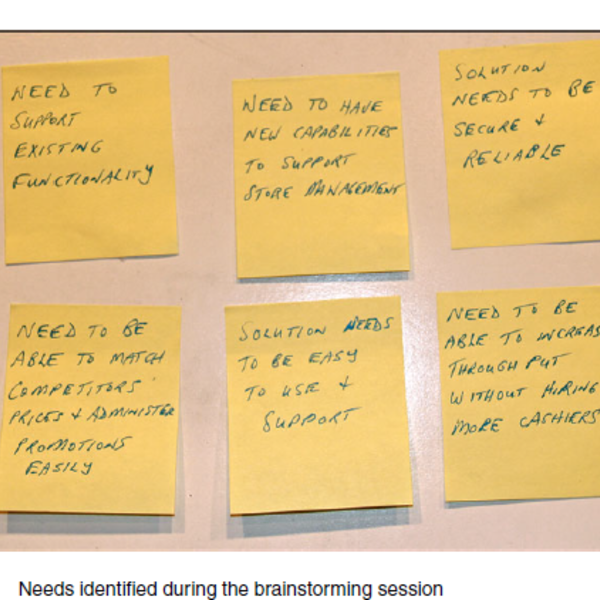 NEED TO
SUPPORT
EXISTING
FUNCTIONALITY
NEED TO HAVE
NEW CAPABILITIES
TO SUPPORT
STORE MANAGEMENT
SOLUTION
NEEDS TO BE
SECURE &
RELIABLE
NEED TO BE
ABLE TO MATCH
COMPETITORS'
PRICES & ADMINISTER
PROMOTIONS
EASILY
SOLUTION NEEDS
TO BE EASY
TO USE &
SUPPORT
NEED TO BE
ABLE TO INCREAS
THROUGH PUT
WITHOUT HIRING
MORE CASHIERS
Needs identified during the brainstorming session